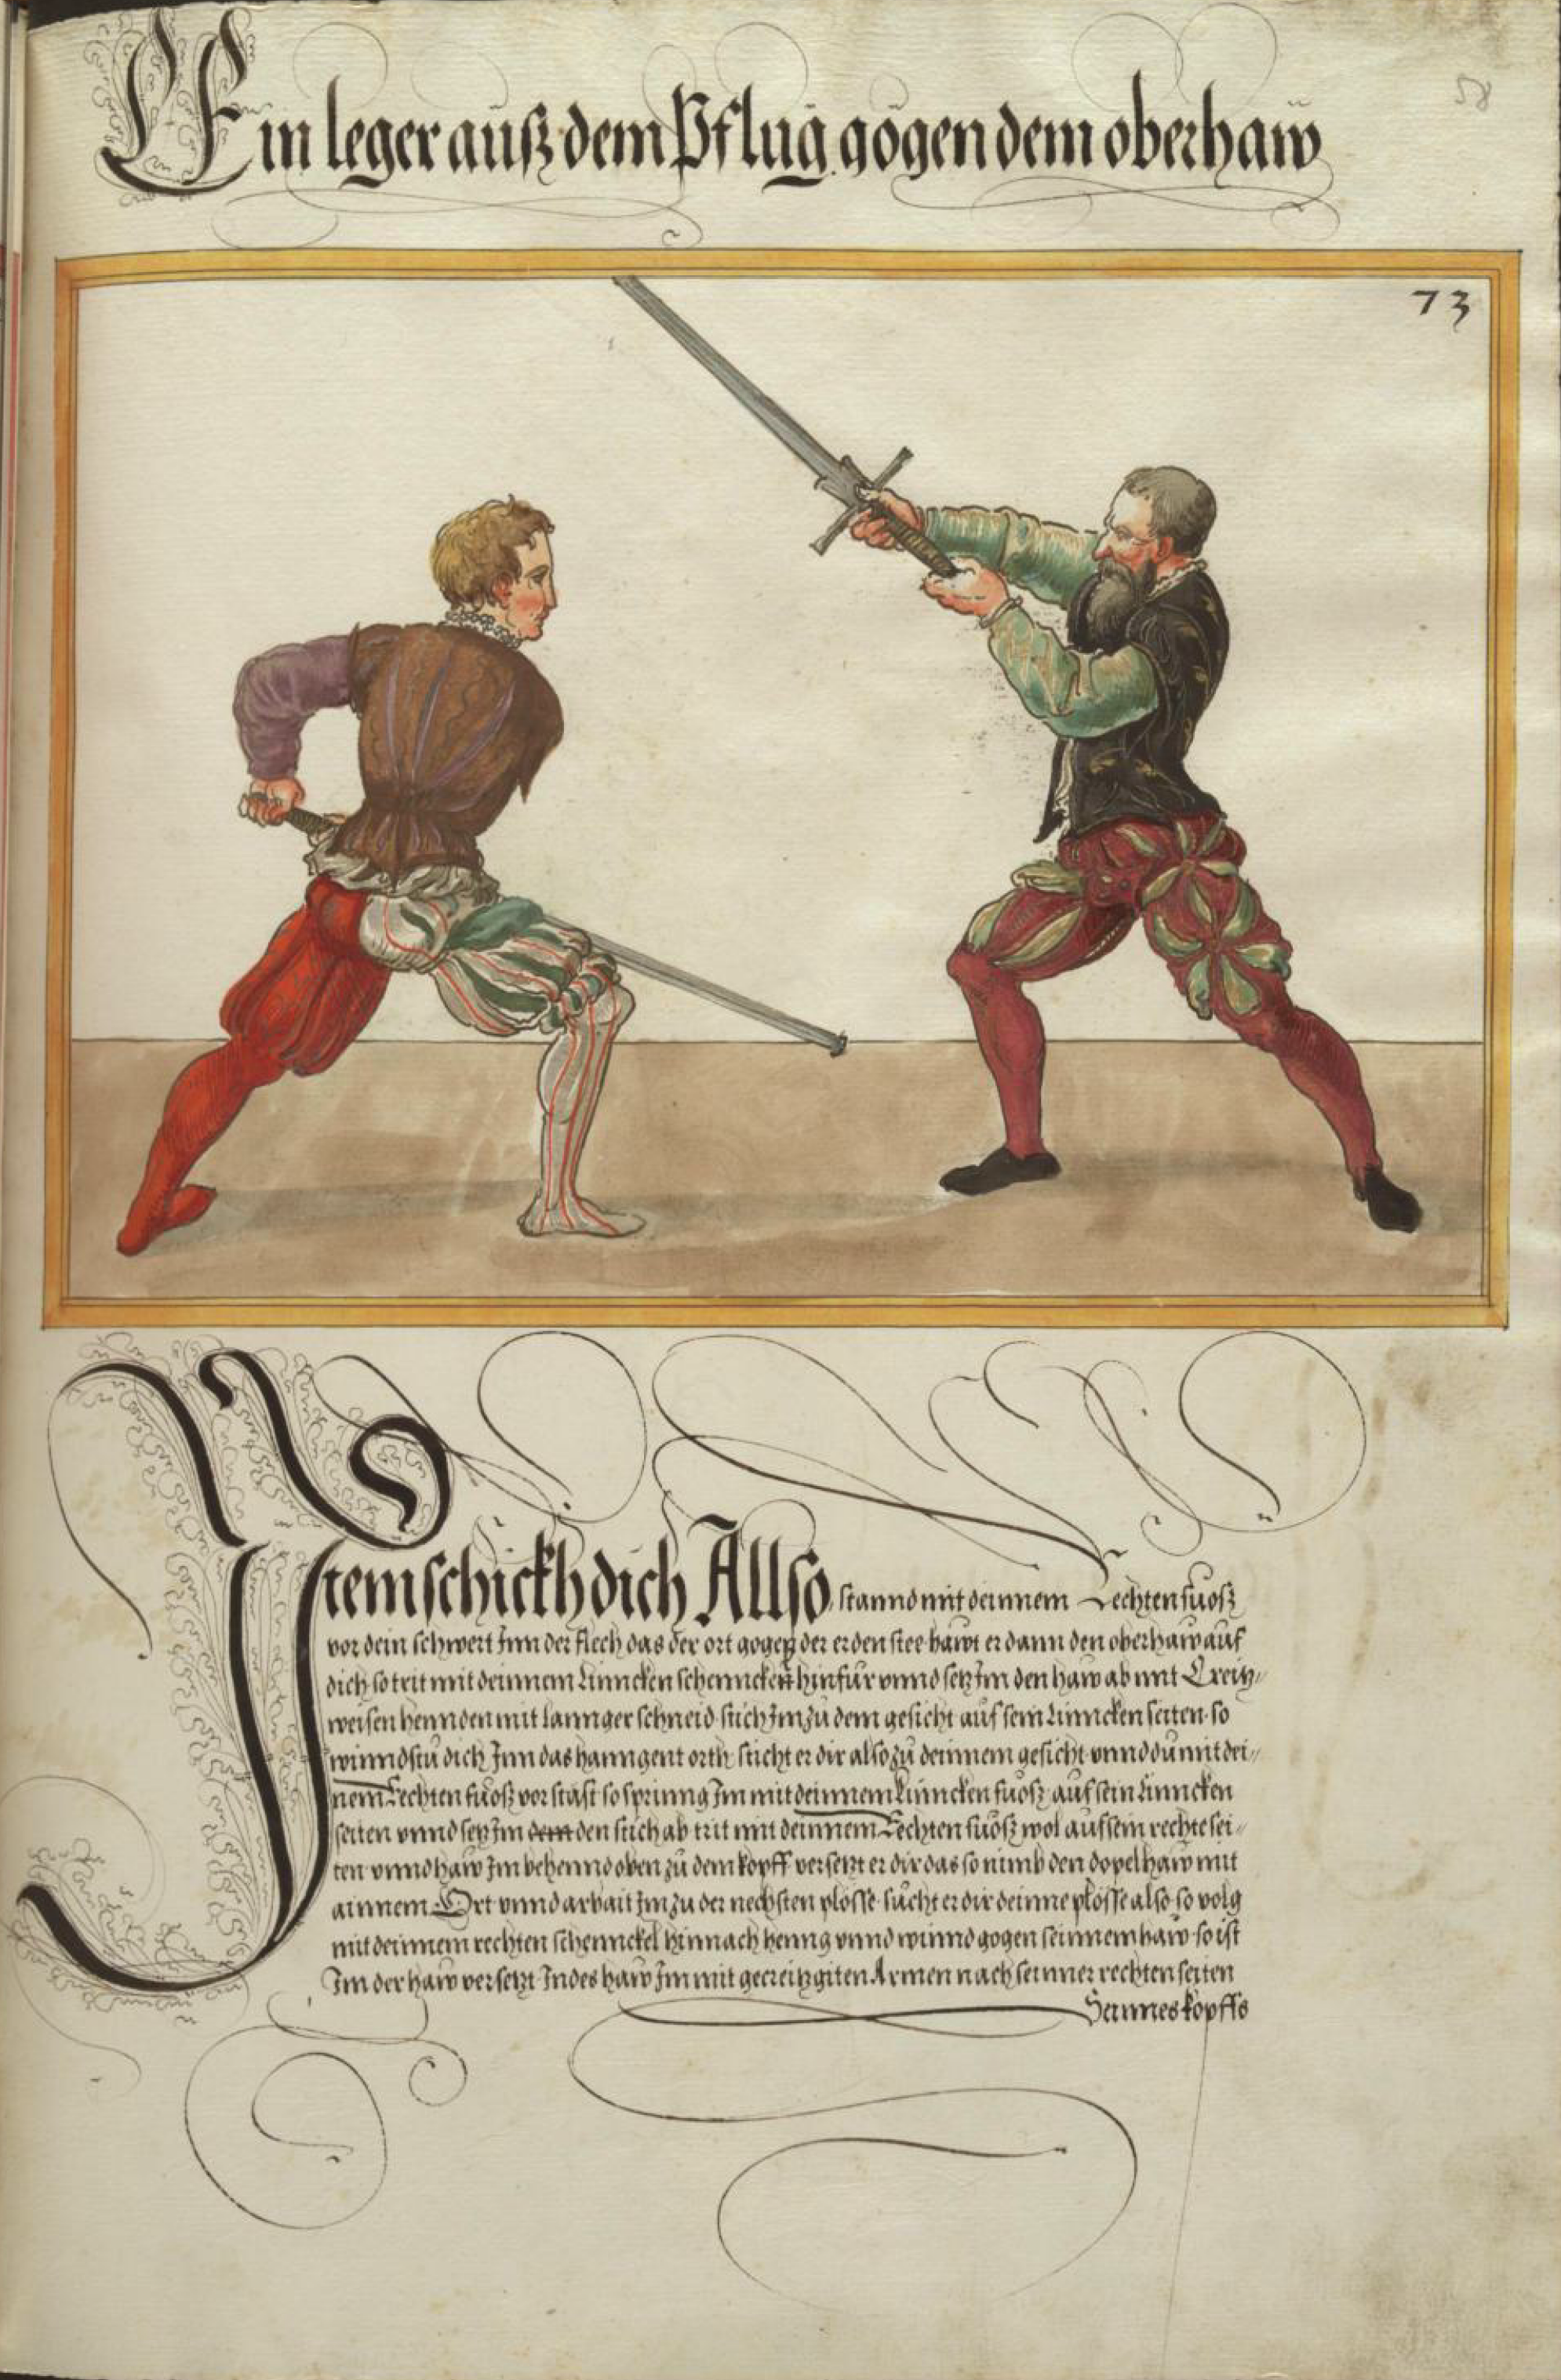 Ein leger auſz dem Pflug gögen dem oberhaw
58
73
Item ſchickh dich Allſo ſtannd mit deinnem Rechten fuoſz
vor dein ſchwert Inn der flech das der ort gogen der erden ſtee hawt er dann den oberhaw auf
dich ſo trit mit deinnem Linncken ſchennckel hinfür vnnd ſetz Im den haw ab mit Creitz-
weiſen hennden mit lannger ſchneid ſtich Im zu dem geſicht auf ſein Linncken ſeiten ſo
winndſtu dich Inn das hanngent orth ſticht er dir alſo zu deinnem geſicht vnnd dü mit dei-
nem Rechten fuoſz vor ſtäſt ſo ſprinng Im mit deinnem Linncken fuoſz auf ſein Linncken
ſeiten vnnd ſetz Im dem den ſtich ab trit mit deinnem Rechten fuoſz wol auf ſein rechte ſei-
ten vnnd haw Im behennd oben zu dem kopff verſetzt er dir das ſo nimb den dopelhaw mit
ainnem Ort vnnd arbait Im zu der nechſten plöſſe ſücht er dir deinne plöſſe alſo ſo volg
mit deinnem rechten ſchennckel hinnach henng vnnd winnd gogen ſeinnem haw ſo iſt
Im der haw verſetzt Indes haw Im mit gecreitzgiten Armen nach ſeinner rechten ſeiten
Seinnes kopffs